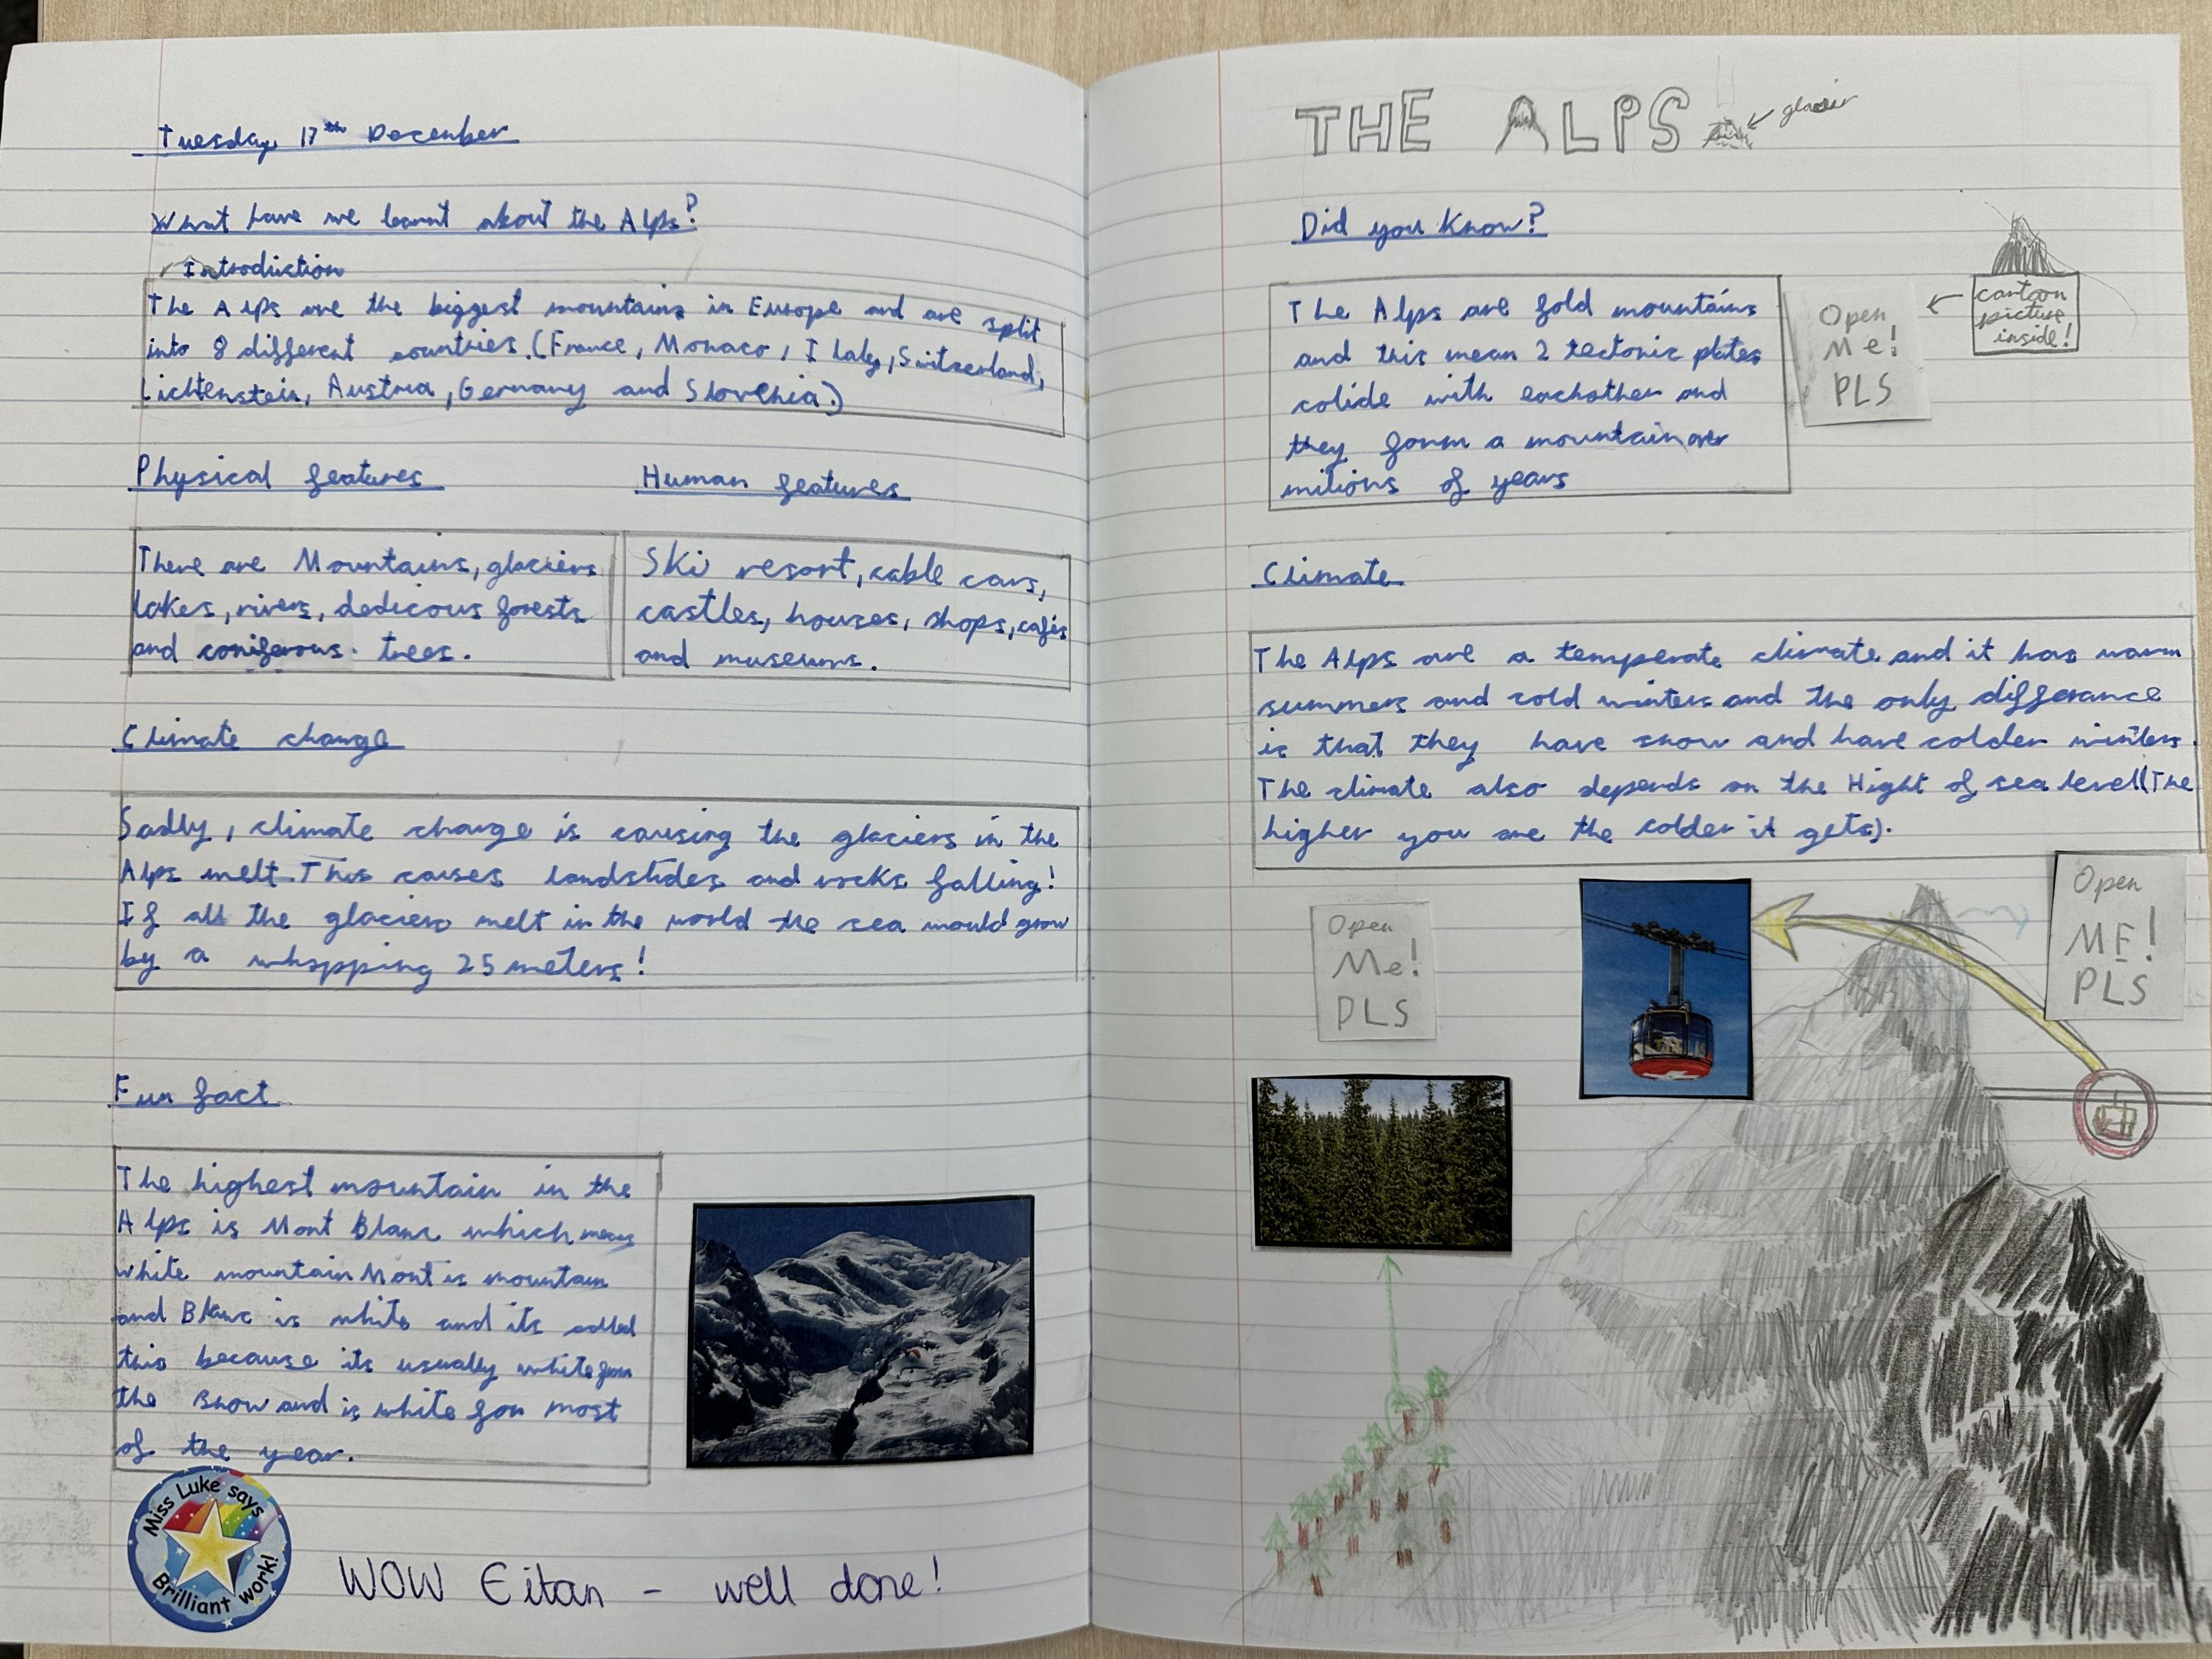 Tuesday, 17th December
What have we learnt about the Alps?
Introduction
The Alps are the biggest mountains in Europe and are split
into 8 different countries.(France, Monaco, Italy, Switzerland,
Lichtenstein, Austria, Germany and Slovenia.)
Physical features
Human features
There are Mountains, glaciers
lakes, rivers, dedicous forests
and coniferous. trees.
Ski resort, cable cars,
castles, houses, shops, cafés
and museums.
Climate change
Sadly, climate change is causing the glaciers in the
Alps melt. This causes landslides and rocks falling!
If all the glaciers melt in the world the sea would grow
by a whopping 25 meters!
Fun fact
The highest mountain in the
Alps is Mont Blanc which means
white mountain Mont is mountain
and Blanc is white and its called
this because its usually white from
the snow and is white for most
of the year.
Miss Luke says
Brilliant work!
WOW Eitan - well done!
THE ALPS
glacier
Did you know?
The Alps are fold mountains
and this mean 2 tectonic plates
colide with eachother and
they form a mountain over
milions of years
Open
Me!
PLS
cartoon
picture
inside!
Climate
The Alps are a temperate climate and it has warm
summers and cold winters and the only differance
is that they have snow and have colder winters.
The climate also depends on the Hight of sea level(The
higher you are the colder it gets).
Open
Me!
PLS
Open
ME!
PLS